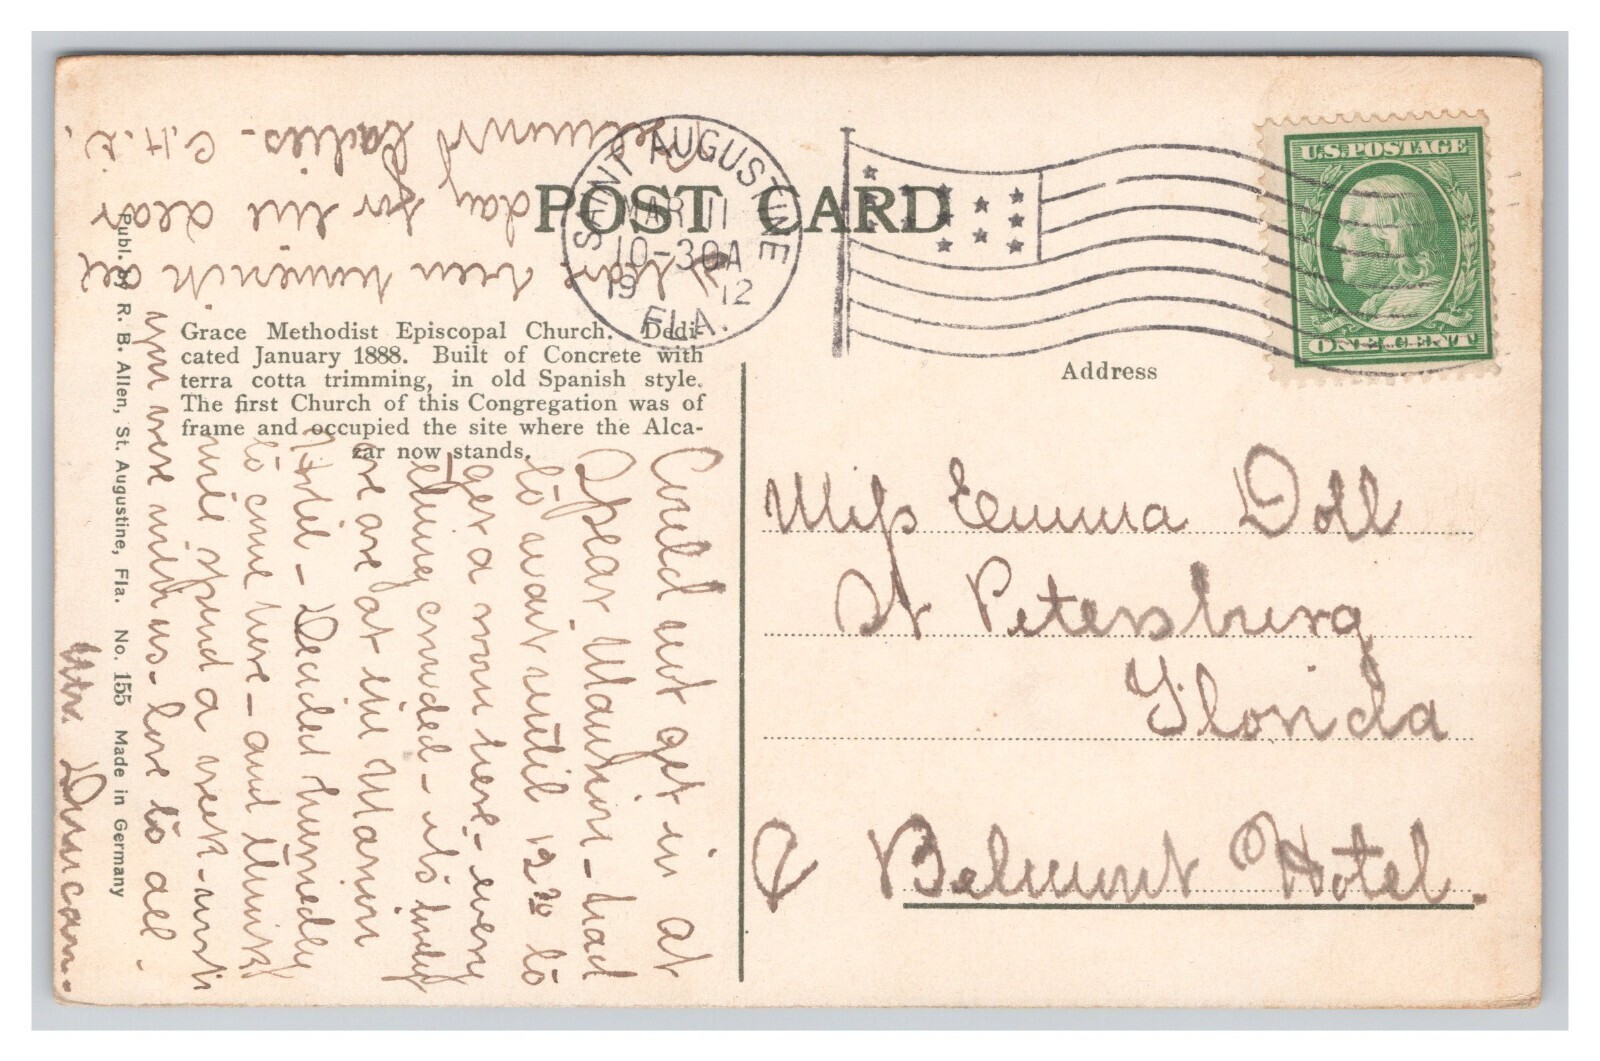 POST CARD
SAINT AUGUSTINE
MAR 11
10-30A
19 12
FLA.
U.S. POSTAGE
ONE CENT
Grace Methodist Episcopal Church. Dedi-
cated January 1888. Built of Concrete with
terra cotta trimming, in old Spanish style.
The first Church of this Congregation was of
frame and occupied the site where the Alca-
zar now stands.
Publ. by R. B. Allen, St. Augustine, Fla. No. 155 Made in Germany
Address
Miss Emma Doll
St Petersburg
Florida
Belmont Hotel.
Could not get in at
Spear Mansion - had
to wait until 12 30 to
get a room here - every
thing crowded - it's lively
we are at the Marion
Hotel - Decided hurriedly
to come here - and think
will spend a week - wish
you were with us - love to all -
Mr. Duncan.
been
day for the dear
Belmont Ladies - C.H.D.